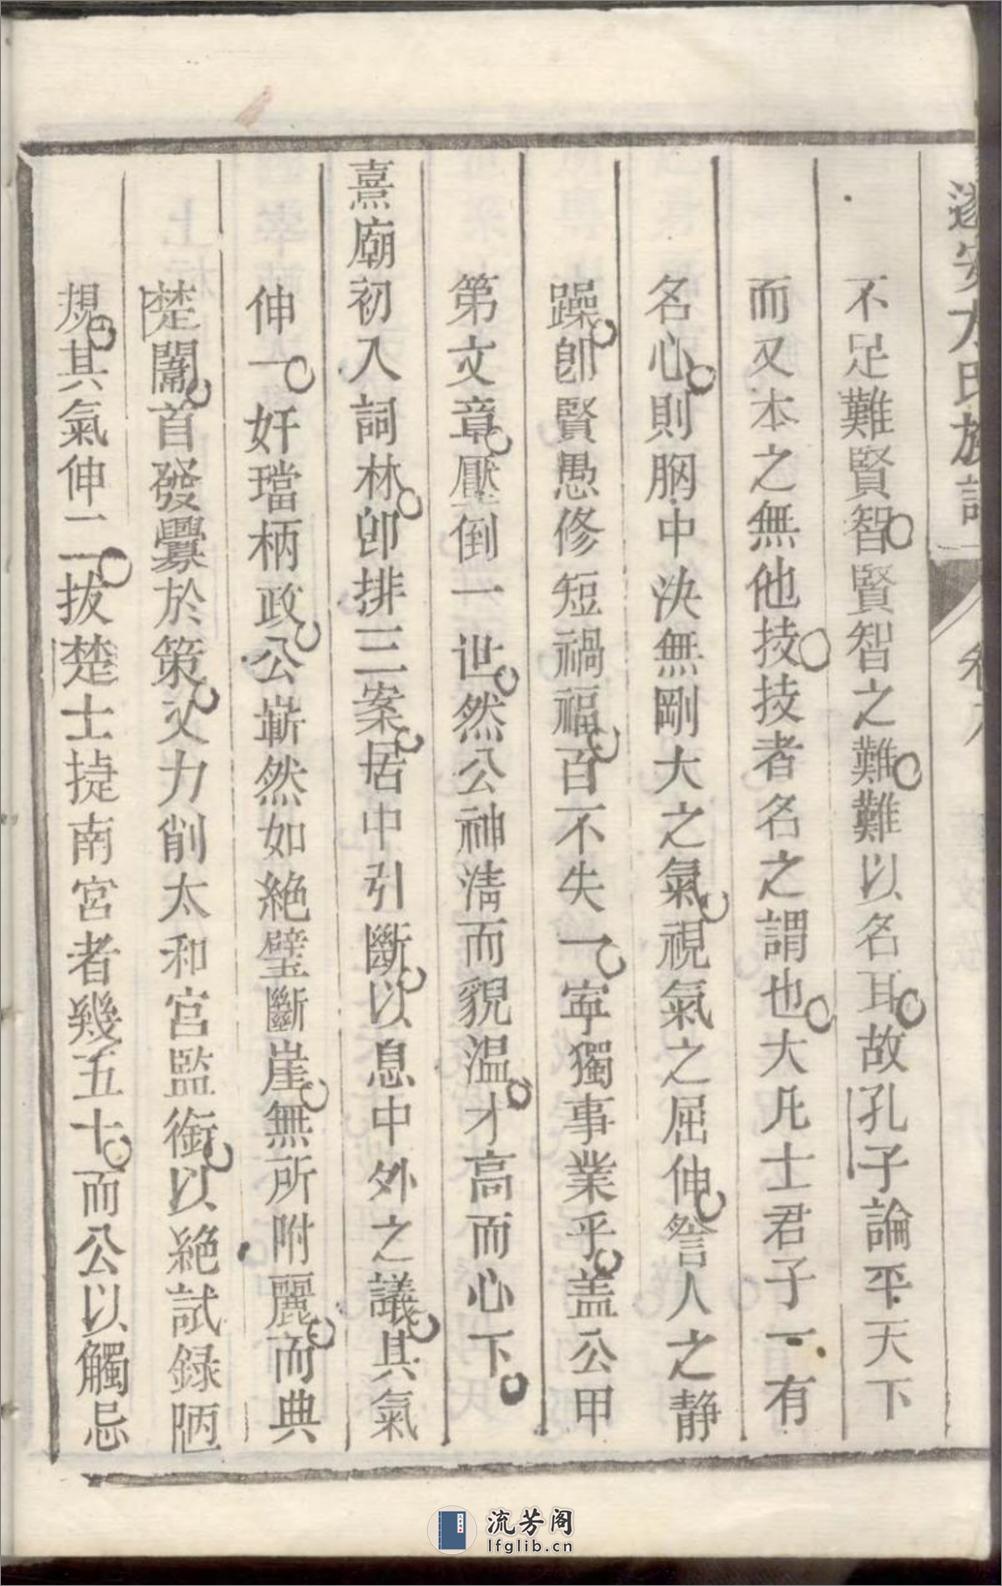 遂安方氏族譜
不足難賢智賢智之難難以名耳故孔子論平天下
而又本之無他技技者名之謂也大凡士君子一有
名心則胸中決無剛大之氣視氣之屈伸詧人之静
躁卽賢愚修短禍福百不失一寧獨事業乎盖公甲
第文章壓倒一世然公神清而貌温才高而心下
熹廟初入詞林卽排三案居中引斷以息中外之議其氣
伸一奸璫柄政公嶄然如絶壁斷崖無所附麗而典
楚闈首發釁於策又力削太和宮監銜以絶試録陋
規其氣伸二拔楚士㨗南宮者幾五十而公以觸忌
流芳阁
lfglib.cn